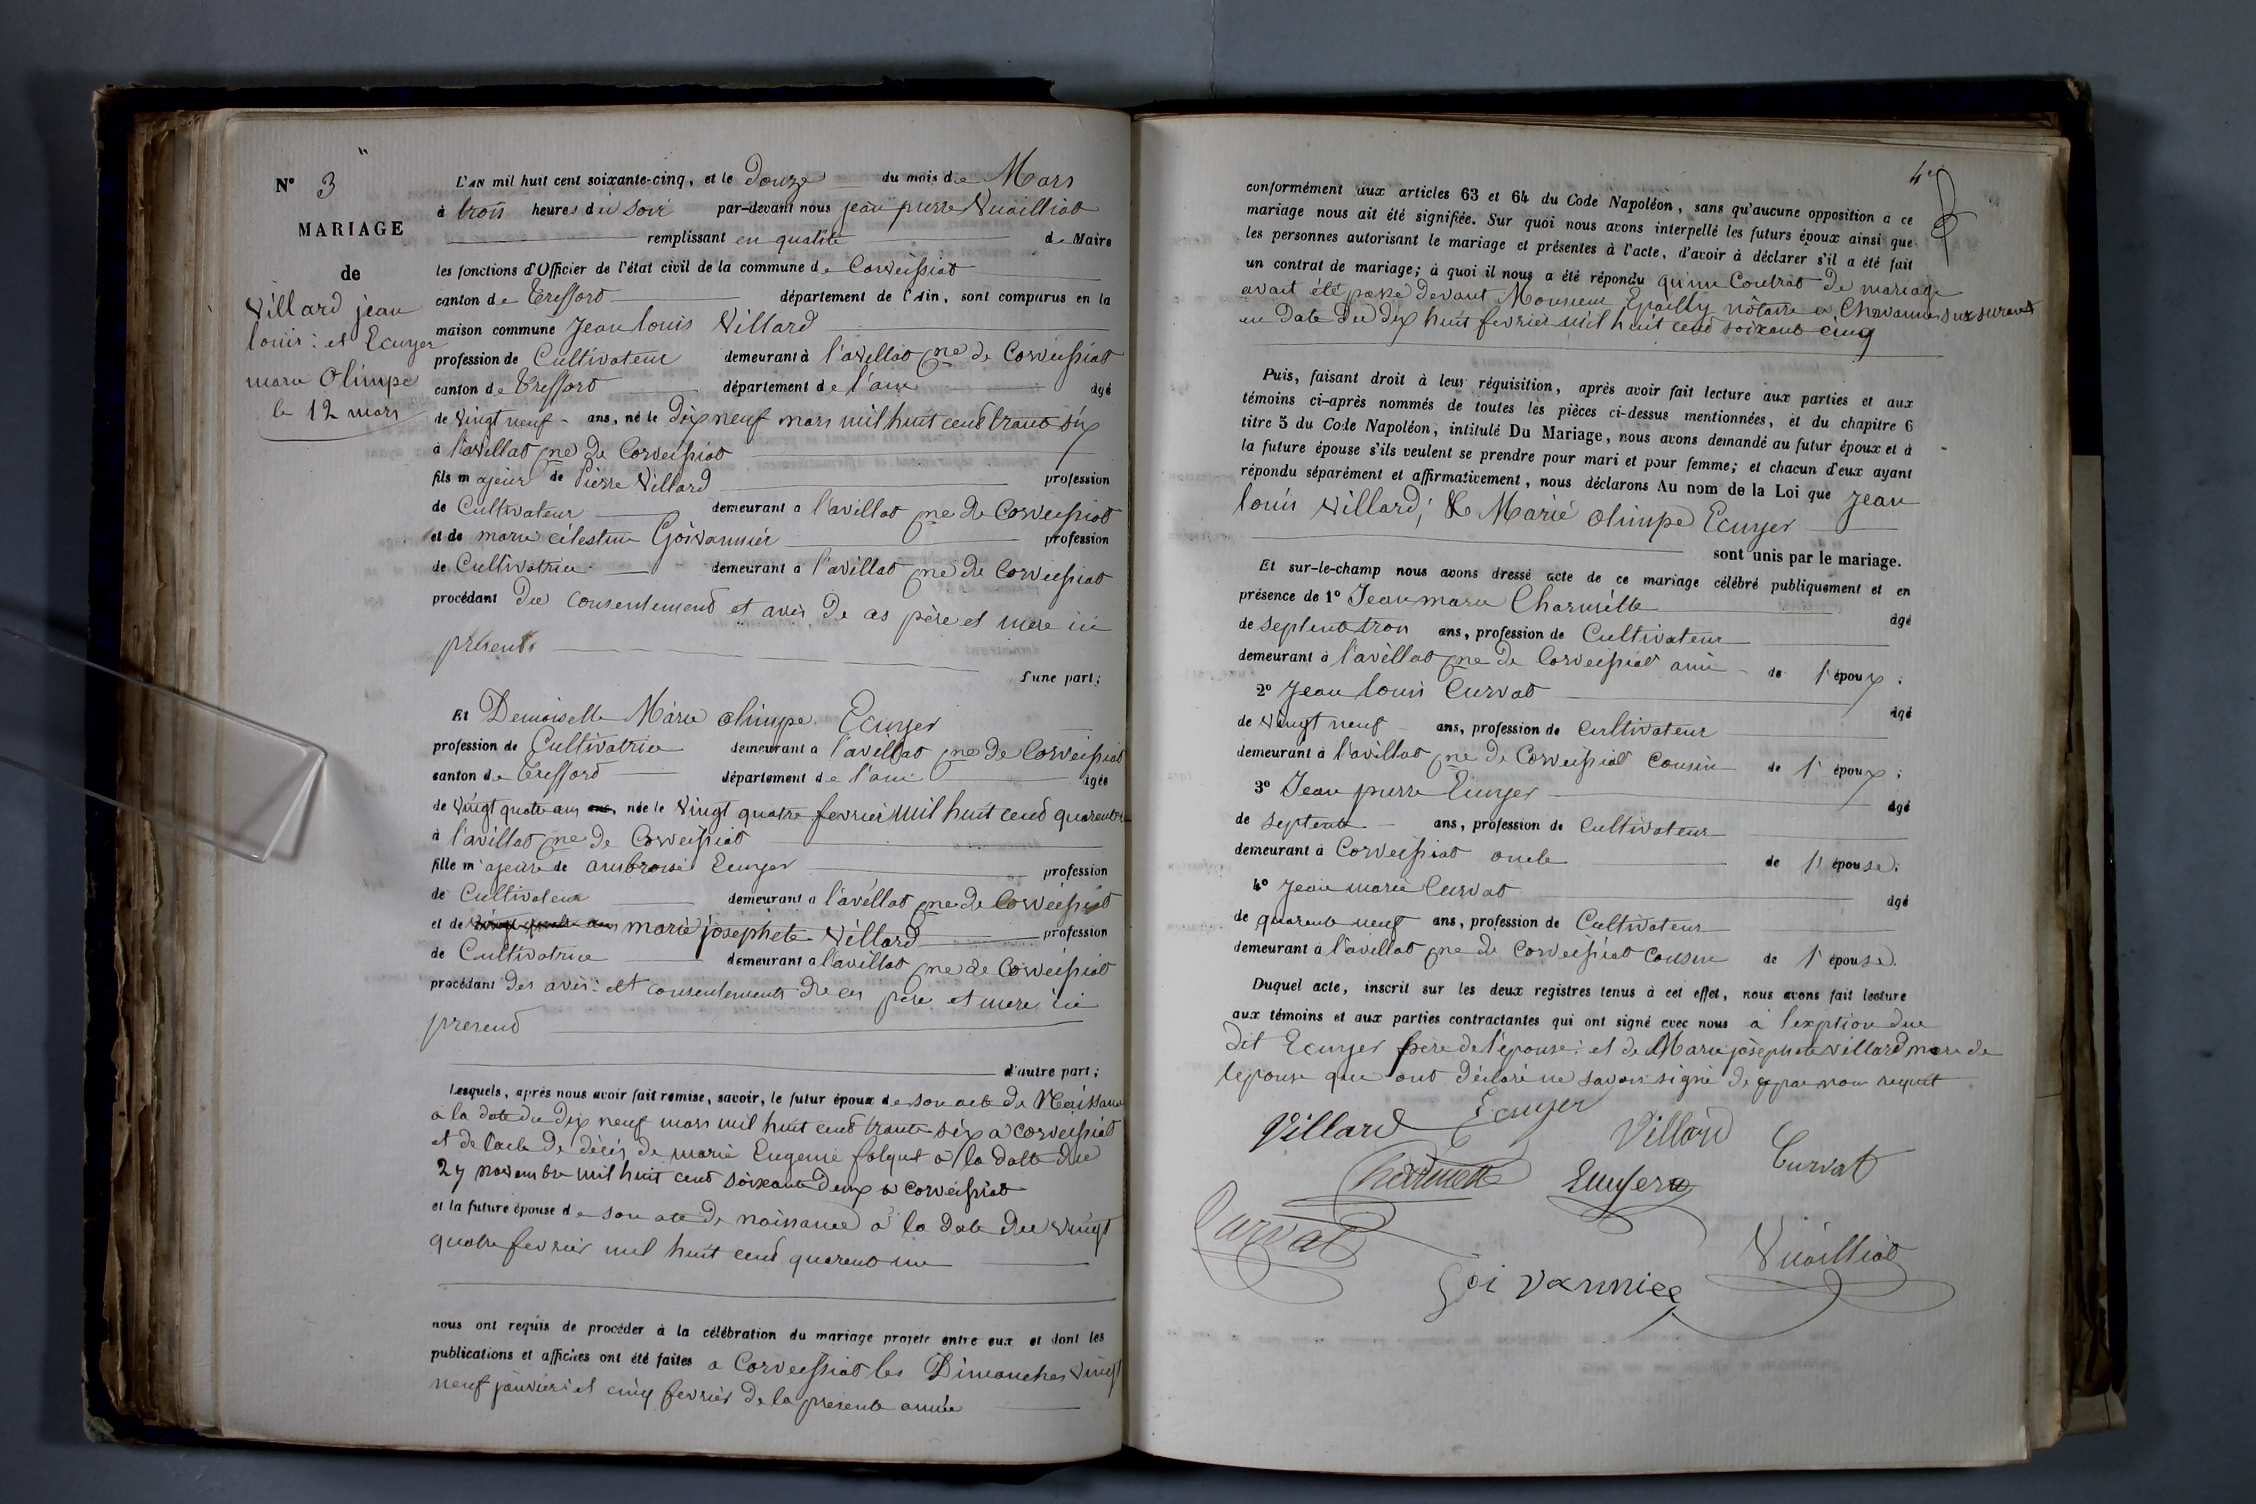 N° 3
MARIAGE
de
Villard jean
louis : et Ecuyer
marie Olimpe
le 12 mars
L'AN mil huit cent soixante-cinq, et le Douze du mois de Mars
à trois heures du soir par-devant nous jean pierre Vuailliat
remplissant en qualité de Maire
les fonctions d'Officier de l'état civil de la commune de Corveissiat
canton de Treffort département de l'Ain, sont comparus en la
maison commune Jean louis Villard
profession de Cultivateur demeurant à l'avillat cne de Corveissiat
canton de Treffort département de l'ain âgé
de vingt neuf ans, né le dix neuf mars mil huit cent trente six
à l'avillat cne de Corveissiat
fils majeur de Pierre Villard profession
de Cultivateur demeurant à l'avillat cne de Corveissiat
et de marie célestine Goivannier profession
de Cultivatrice demeurant à l'avillat cne de Corveissiat
procédant du consentement et avis de as père et mere ici
présents
d'une part;
Et Demoiselle Marie olimpe Ecuyer
profession de Cultivatrice demeurant à l'avillat cne de Corveissiat
canton de Treffort département de l'ain âgée
de vingt quatre ans ans, née le vingt quatre fevrier mil huit cent quarente un
à l'avillat cne de Corveissiat
fille majeure de ambroise Ecuyer profession
de Cultivateur demeurant à l'avillat cne de Corveissiat
et de vingt quatre ans marie josephete Villard profession
de Cultivatrice demeurant à l'avillat cne de Corveissiat
procédant des avis : et consentements de ces père et mere ici
present
d'autre part;
Lesquels, après nous avoir fait remise, savoir, le futur époux de son acte de Naissance
a la date du dix neuf mars mil huit cent trante six a corveissiat
et de l'acte de décès de marie Eugenie folquet a la datte du
27 novembre mil huit cent soixante deux a corveissiat
et la future épouse de son acte de naissance a la date du vingt
quatre fevrier mil huit cent quarent un
nous ont requis de procéder à la célébration du mariage projeté entre eux et dont les
publications et affiches ont été faites a Corveissiat les Dimanches vingt
neuf janvier et cinq fevrier de la presente année
4e
conformément aux articles 63 et 64 du Code Napoléon, sans qu'aucune opposition à ce
mariage nous ait été signifiée. Sur quoi nous avons interpellé les futurs époux ainsi que
les personnes autorisant le mariage et présentes à l'acte, d'avoir à déclarer s'il a été fait
un contrat de mariage; à quoi il nous a été répondu qu'un Contrat de mariage
avait été passé devant Monsieur Epailly nôtaire a Chavannes sur suran
en date du dix huit fevrier mil huit cent soixante cinq
Puis, faisant droit à leur réquisition, après avoir fait lecture aux parties et aux
témoins ci-après nommés de toutes les pièces ci-dessus mentionnées, et du chapitre 6
titre 5 du Code Napoléon, intitulé Du Mariage, nous avons demandé au futur époux et à
la future épouse s'ils veulent se prendre pour mari et pour femme; et chacun d'eux ayant
répondu séparément et affirmativement, nous déclarons Au nom de la Loi que Jean
louis Villard, & Marie olimpe Ecuyer
sont unis par le mariage.
Et sur-le-champ nous avons dressé acte de ce mariage célébré publiquement et en
présence de 1° Jean marie Charmette
âgé
de septente trois ans, profession de Cultivateur
demeurant à l'avillat cne de Corveissiat ami de l'époux;
2° Jean louis Curvat
âgé
de vingt neuf ans, profession de cultivateur
demeurant à l'avillat cne de Corveissiat cousin de l'époux;
3° Jean pierre Ecuyer
âgé
de septente ans, profession de cultivateur
demeurant à Corveissiat oncle de l'épouse;
4° Jean marie Curvat
âgé
de quarente neuf ans, profession de Cultivateur
demeurant à l'avillat cne de Corveissiat cousin de l'épouse.
Duquel acte, inscrit sur les deux registres tenus à cet effet, nous avons fait lecture
aux témoins et aux parties contractantes qui ont signé avec nous a l'exption du
dit Ecuyer père de l'épouse : et de Marie josephete villard mere de
lepouse que ont déclaré ne savoir signé de ce par nous requit
Villard Ecuyer Villard Curvat
Charmette Ecuyer
Curvat Vuailliat
Goivannier